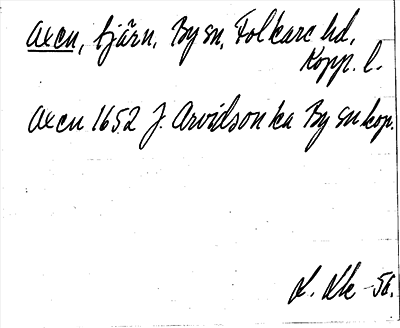 Axen, tjärn, By sn, Folkare hd,
Kopp. l.
Axen 1652 J. Arvidson ka By sn kop.